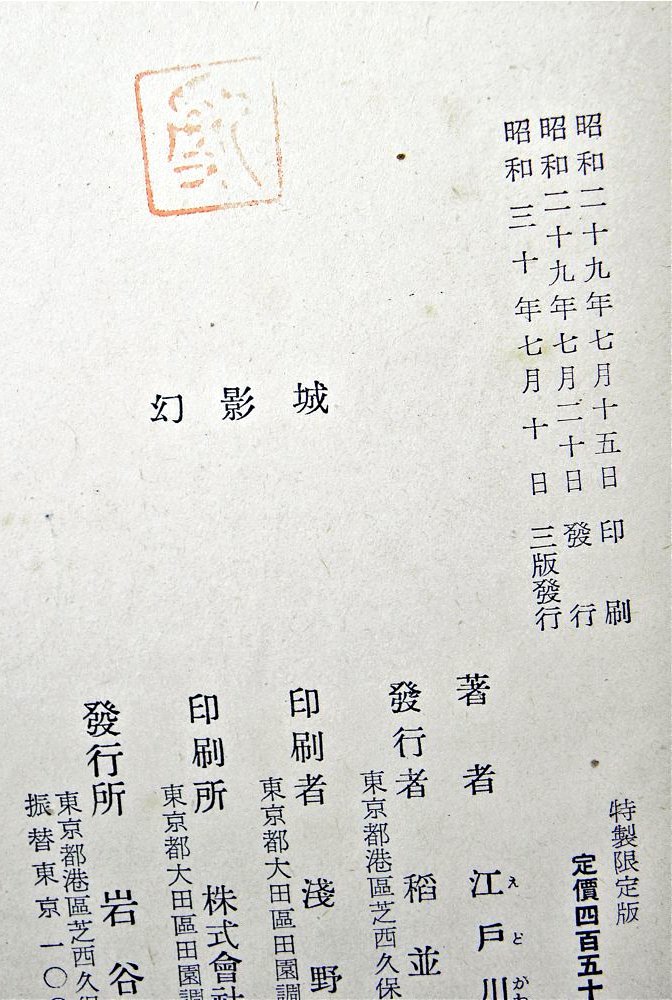 昭和二十九年七月十五日 印刷
昭和二十九年七月二十日 發行
昭和三十年七月十日 三版發行
幻影城
特製限定版
定價四百五十
著者 江戸川
えどがわ
發行者 稻並
東京都港區芝西久保
印刷者 淺野
東京都大田區田園調
印刷所 株式會社
東京都大田區田園調
發行所 岩谷
東京都港區芝西久保
振替東京一〇